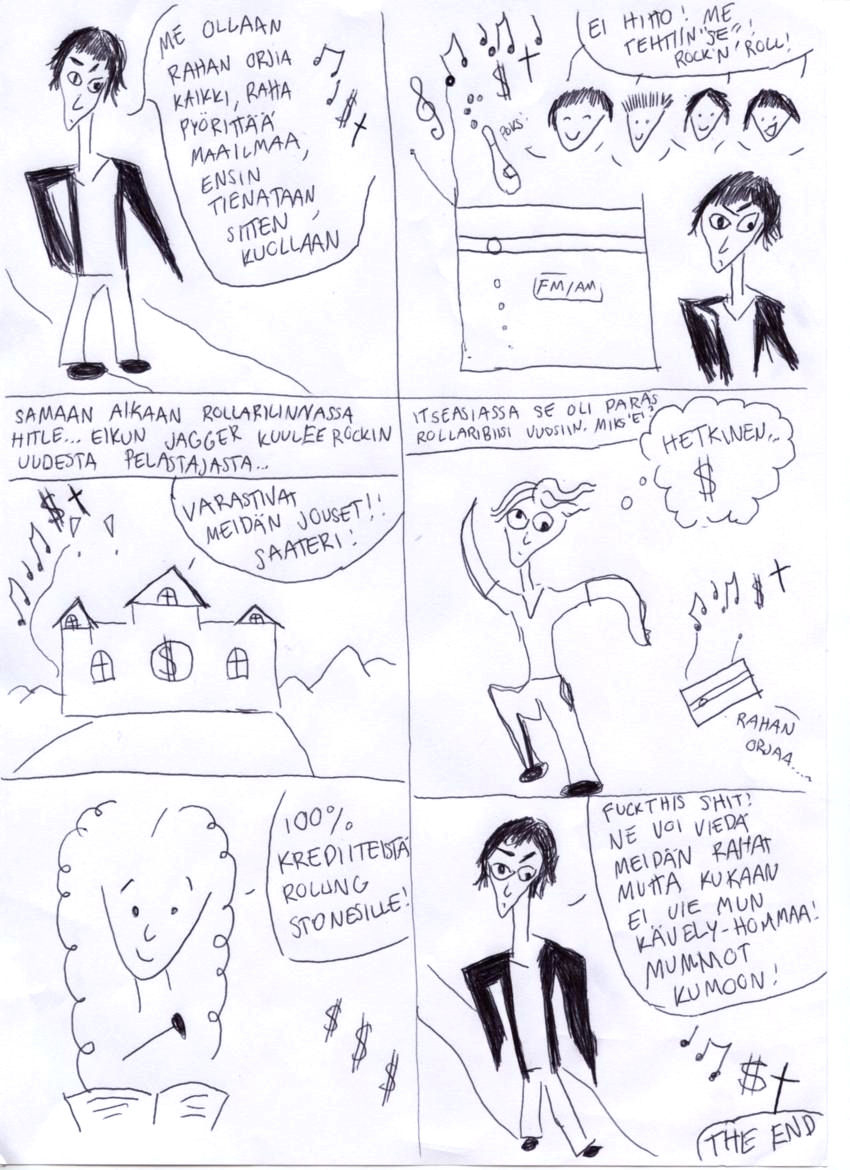 ME OLLAAN
RAHAN ORJIA
KAIKKI, RAHA
PYÖRITTÄÄ
MAAILMAA,
ENSIN
TIENATAAN,
SITTEN
KUOLLAAN
EI HITTO! ME
TEHTIIN "SE"!
ROCK'N' ROLL!
POKS!
FM/AM
SAMAAN AIKAAN ROLLARILINNASSA
HITLE... EIKUN JAGGER KUULEE ROCKIN
UUDESTA PELASTAJASTA...
VARASTIVAT
MEIDÄN JOUSET!!
SAATERI!
ITSEASIASSA SE OLI PARAS
ROLLARIBIISI VUOSIIN. MIKS'EI?
HETKINEN...
$
RAHAN
ORJAA....
100%
KREDIITEISTÄ
ROLLING
STONESILLE!
FUCK THIS SHIT!
NE VOI VIEDÄ
MEIDÄN RAHAT
MUTTA KUKAAN
EI VIE MUN
KÄVELY-HOMMAA!
MUMMOT
KUMOON!
THE END